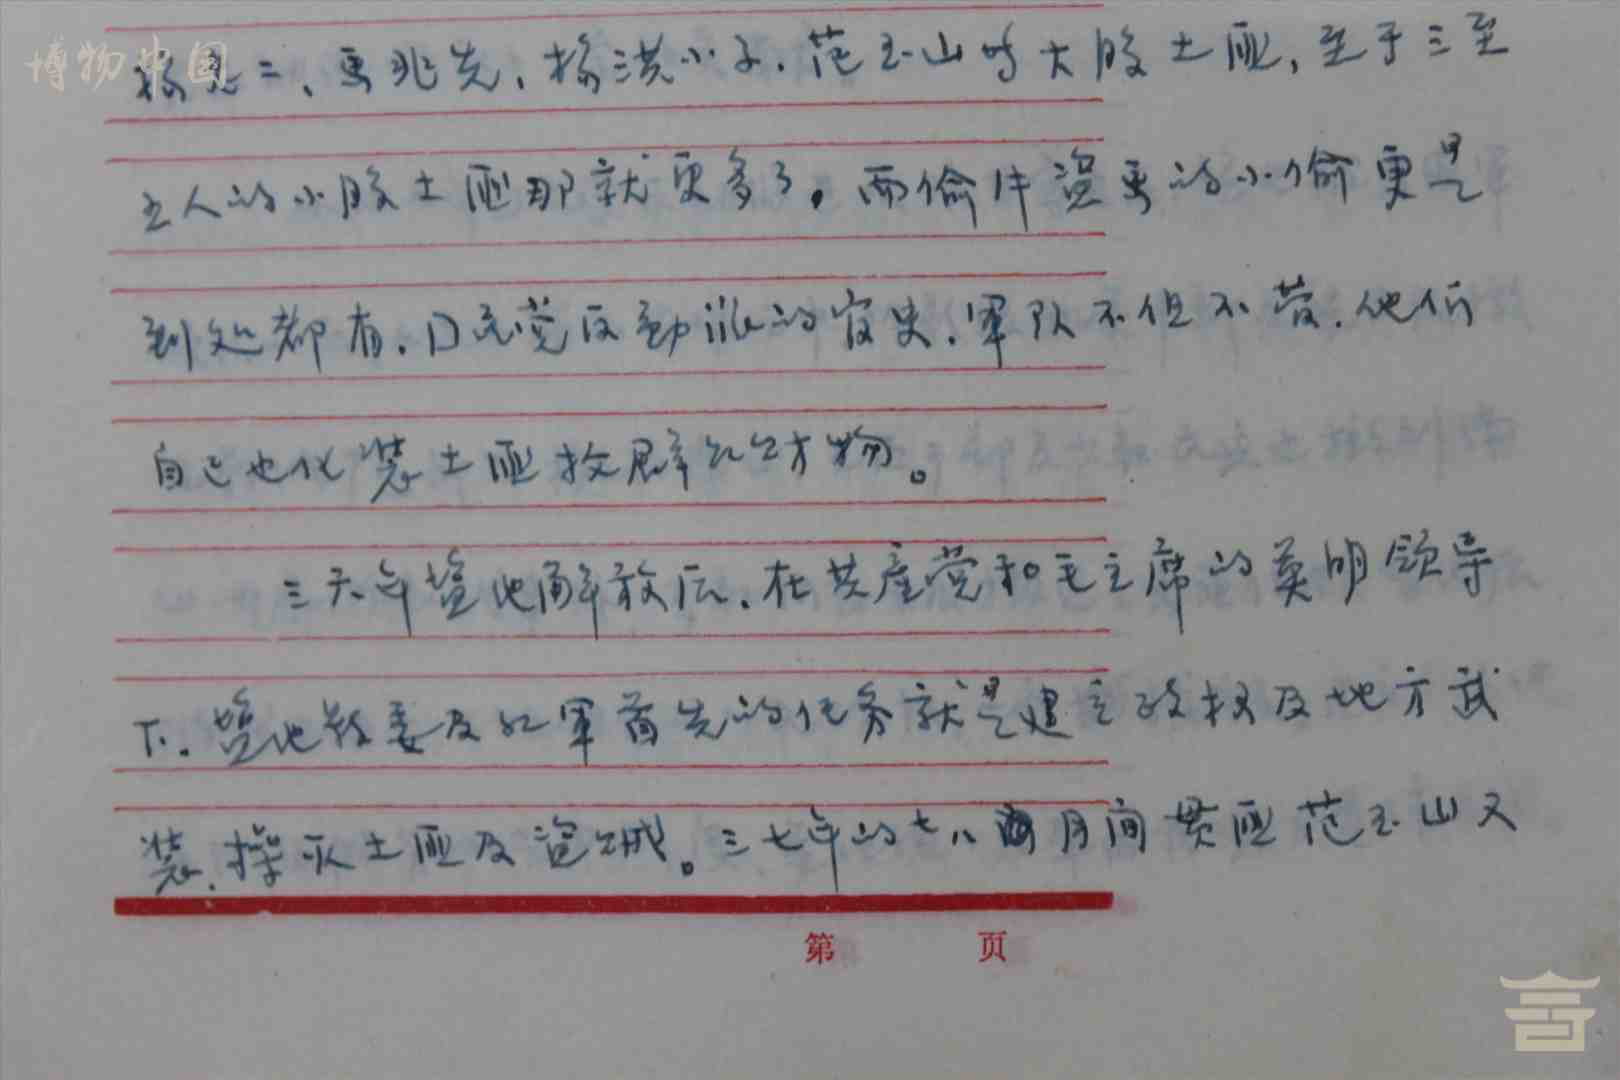 博物中国
杨老二、马兆先、杨洪小子、范玉山等大股土匪,至于三至
五人的小股土匪那就更多了。而偷牛盗马的小偷更是
到处都有,国元党反动派的官吏、军队不但不管,他们
自己也化装土匪抢群众的财物。
三六年盐池解放后,在共产党和毛主席的英明领导
下,盐池县委及红军首先的任务就是建立政权及地方武
装,揉灭土匪及盗贼。三七年的七八两月间惯匪范玉山又
第 页